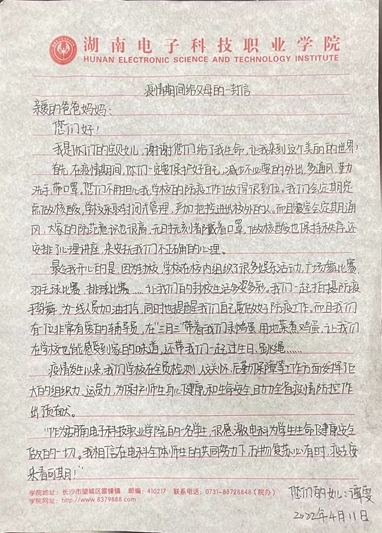 湖南电子科技职业学院
HUNAN ELECTRONIC SCIENCE AND TECHNOLOGY INSTITUTE
疫情期间给父母的一封信
亲爱的爸爸妈妈:
您们好!
我是你们的宝贝女儿,谢谢你们给了我生命,让我来到这个美丽的世界!
首先,在疫情期间,你们一定要保护好自己,减少不必要的外出,多通风,勤
洗手,带口罩,您们不用担心我,学校的防疫工作做得很到位。我们会定期
做核酸,学校采取封闭式管理,严加把控进出校外的人。而且寝室会定期通
风,大家的防范意识也很高,无时无刻都戴着口罩,做核酸也保持秩序,还
安排了心理讲座,来安抚我们不正确的心理。
最令我开心的是,因为放学校在校内组织了很多娱乐活动,广场舞比赛
羽毛球比赛、排球比赛……让我们的封校生活多姿多彩。我们一起拍摄防疫
手势舞,为一线人员加油打气,同时也提醒我们自己要做好防疫工作。而且我们
有一位非常有爱的辅导员,在"三月三"带着我们
在学校也能感受到家的味道,还带我们一起过生日,
疫情发生以来,我们学校在全员检测、人文关怀、后勤保障等工作方面发挥了巨
大的组织力、运员力,为保护师生身心健康和生命安全,助力全省疫情防控工作
作出贡献。
"作为湖南电子科技职业学院的一名学生,很感激电科为学生生命健康安全
做的一切。我相信在电科全体师生的共同努力下,万物复苏
来者可期!"
您们的女儿:谭雯
2022年4月11日
学院地址:长沙市望城区雷锋镇 邮编:410217 联系电话:0731-88728848(院办)
学院网址:http://www.8379888.com